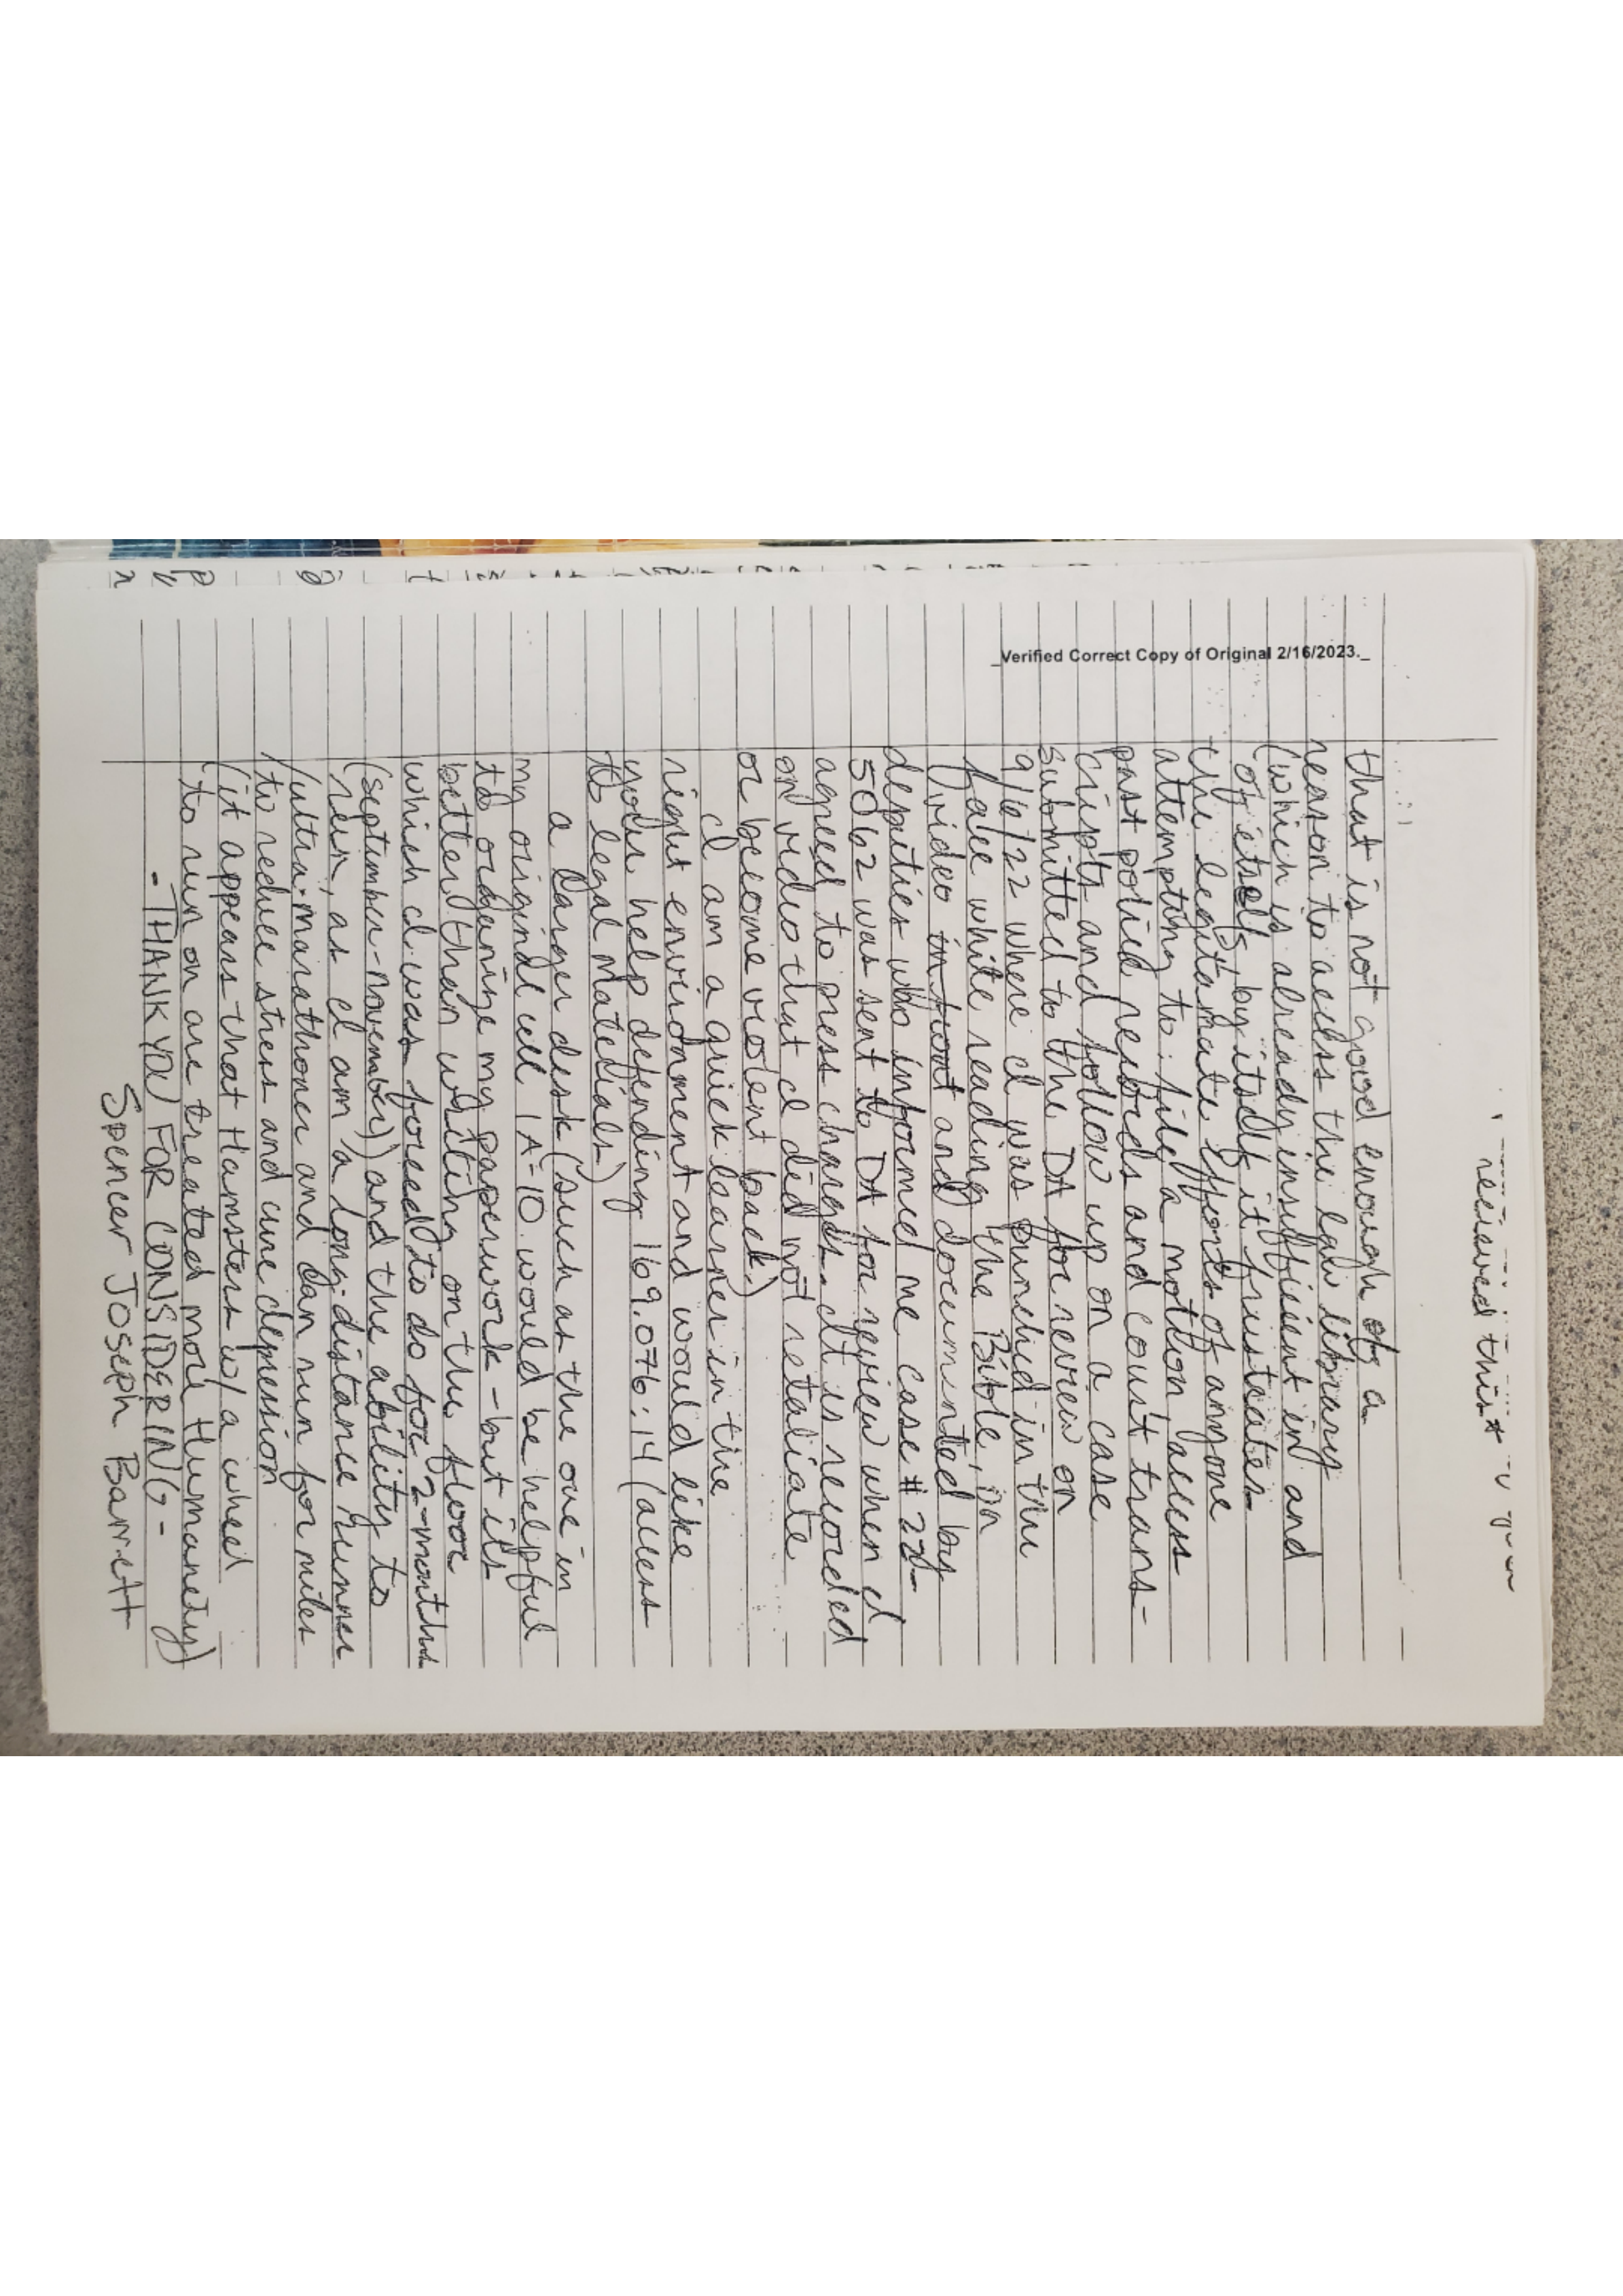 _Verified Correct Copy of Original 2/16/2023._
recieved this *
that is not good enough of a
reason to access the law library
(which is already insufficient in and
of itself) by itself it frustrates
the legitamate efforts of anyone
attempting to: file a motion access
past police records and court trans-
cripts and follow up on a case
submitted to the DA for review on
9/6/22 where I was punched in the
face while reading the Bible, on
video in front and documented by
deputies who informed me case # 22-
5062 was sent to DA for review when I
agreed to press charges. It is recorded
on video that I did not retaliate
or become violent back.)
I am a quick learner in the
right environment and would like
your help defending 169.076:14 (access
to legal Matedials)
a larger desk (such as the one in
my original cell 1A-10 would be helpful
to organize my paperwork - but its
better than writing on the floor
which I was forced to do for 2-months
(september-november)) and the ability to
run, as I am a long-distance runner
/ultra-marathoner and can run for miles
to reduce stress and cure depression
(it appears that Hamsters w/ a wheel
to run on are treated more Humanely)
-THANK YOU FOR CONSIDERING-
Spencer Joseph Barrett